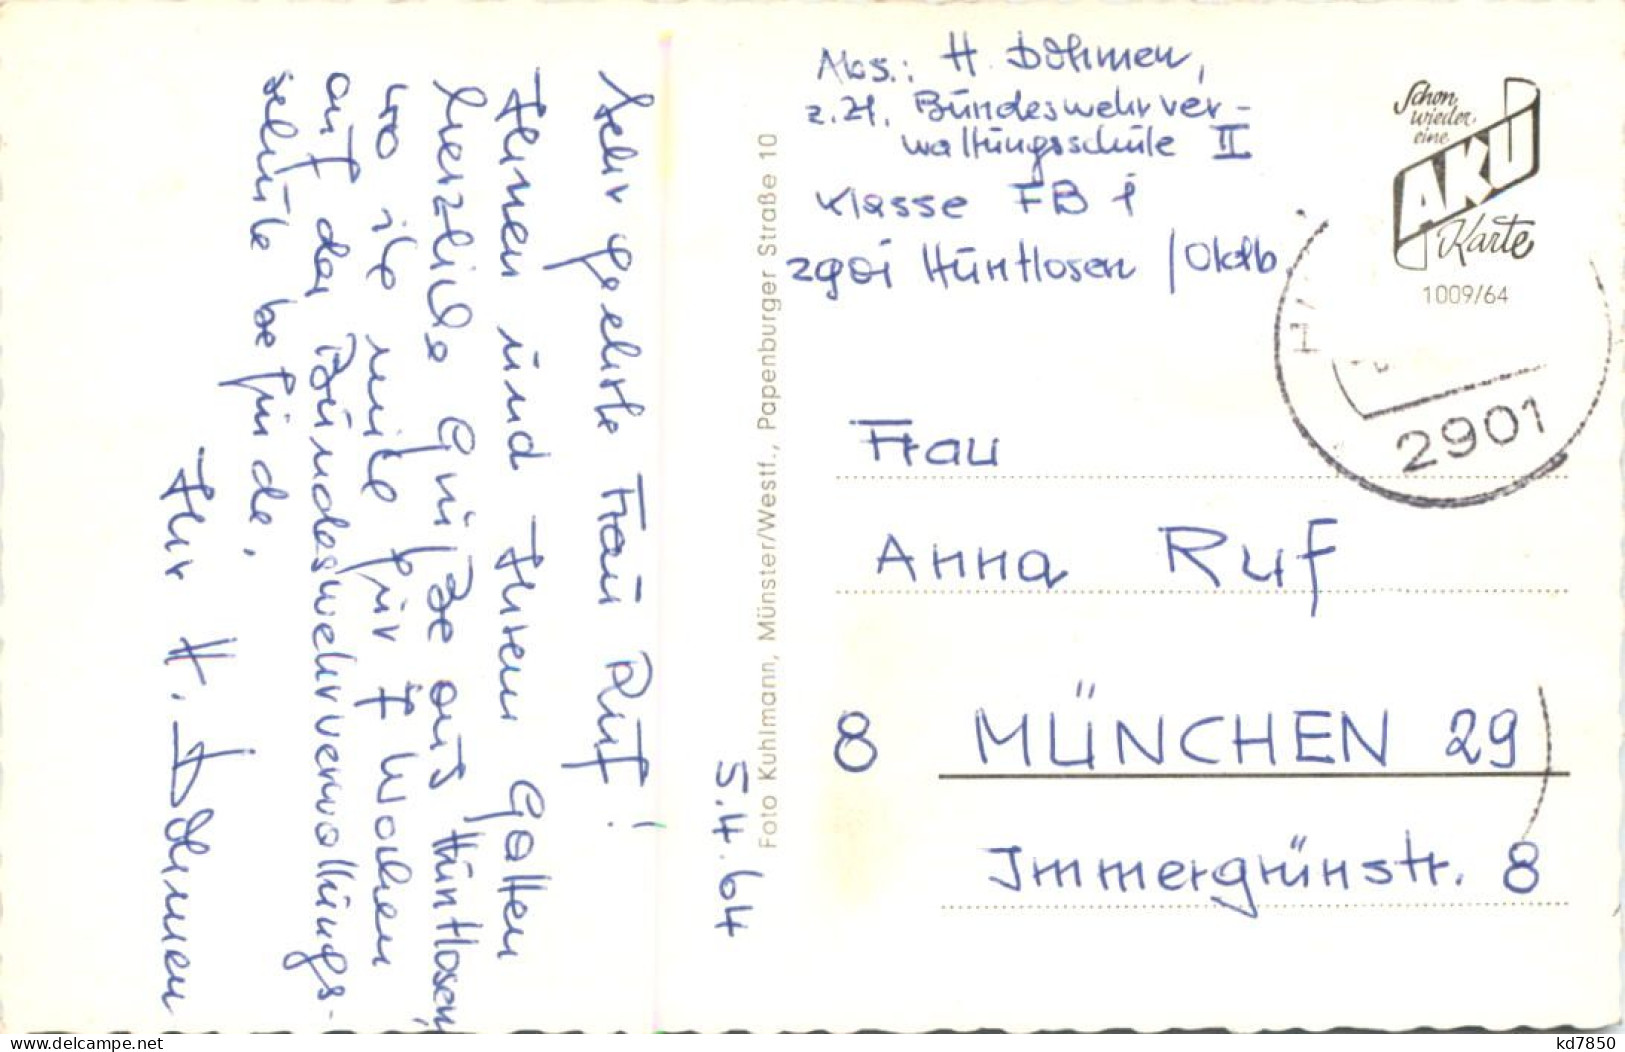 Sehr geehrte Frau Ruf!
Ihnen und Ihrem Gatten
herzliche Grüße aus Huntlosen,
wo ich mich für 7 Wochen
auf der Bundeswehrverwaltungs-
schule befinde.
Ihr H. Döhmen
5.4.64
Foto Kuhlmann, Münster/Westf., Papenburger Straße 10
Abs.: H. Döhmen,
z. Zt. Bundeswehrver-
waltungsschule II
Klasse FB 1
2901 Huntlosen / Oldb
Schon
wieder
eine
AKU
Karte
1009/64
2901
Frau
Anna Ruf
8 MÜNCHEN 29
Immergrünstr. 8
www.delcampe.net
kd7850